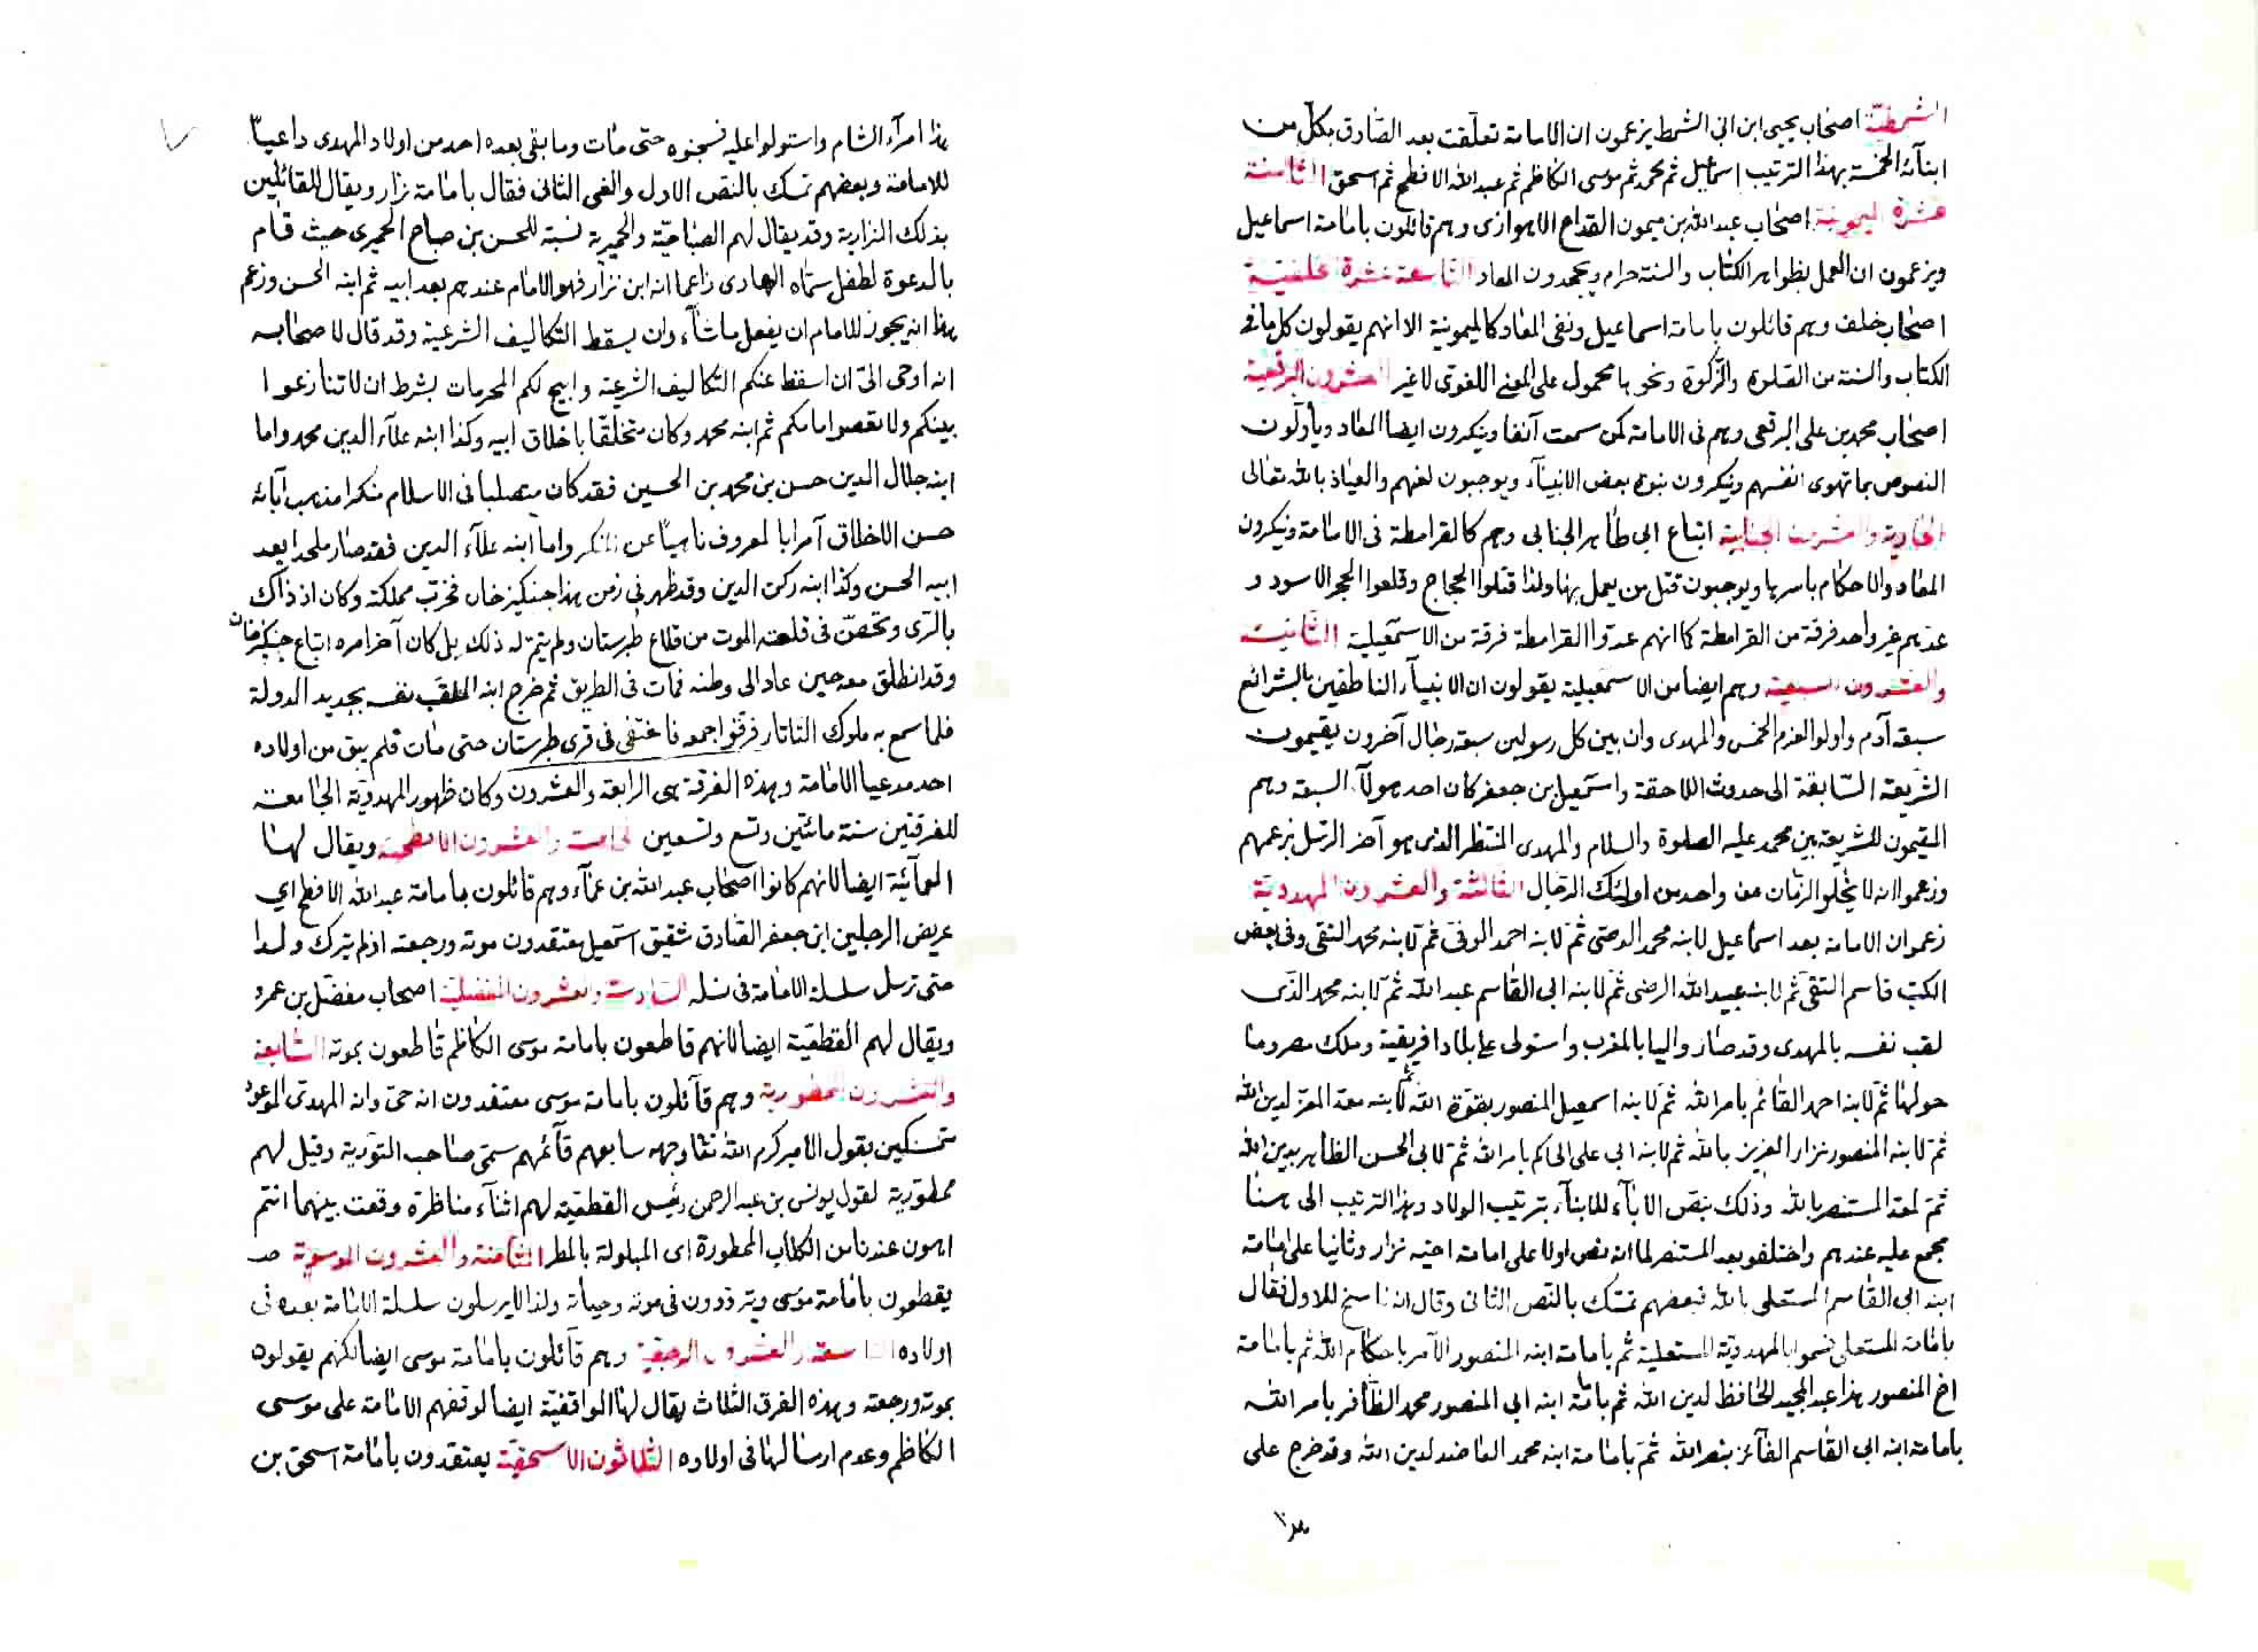 الشمطية اصحاب يحيى ابن ابي الشمط يزعمون ان الامامة تعلقت بعد الصادق بكل من
ابنائه الخمسة بهذا الترتيب اسماعيل ثم محمد ثم موسى الكاظم ثم عبد الله الافطح ثم اسحق الثامنة
عشرة الميمونية اصحاب عبد الله بن ميمون القداح الاهوازى وهم قائلون بامامة اسماعيل
ويزعمون ان العمل بظواهر الكتاب والسنة حرام ويجحدون المعاد التاسعة عشرة الخلفية
اصحاب خلف وهم قائلون بامامة اسماعيل ونفى المعاد كالميمونية الا انهم يقولون كل ما فى
الكتاب والسنة من الصلوة والزكوة ونحوها محمول على المعنى اللغوى لا غير العشرون البرقعية
اصحاب محمد بن على البرقعى وهم فى الامامة كمن سمعت آنفا وينكرون ايضا المعاد ويأولون
النصوص بما تهوى انفسهم وينكرون نبوة بعض الانبيآء ويوجبون لعنهم والعياذ بالله تعالى
الحادية والعشرون الجنابية اتباع ابى طاهر الجنابى وهم كالقرامطة فى الامامة وينكرون
المعاد والاحكام باسرها ويوجبون قتل من يعمل بها ولذا قتلوا الحجاج وقلعوا الحجر الاسود و
عدهم غير واحد فرقة من القرامطة كما انهم عدوا القرامطة فرقة من الاسمعيلية الثانية
والعشرون السبعية وهم ايضا من الاسمعيلية يقولون ان الانبيآء الناطقين بالشرائع
سبعة آدم واولوا العزم الخمس والمهدى وان بين كل رسولين سبعة رجال آخرون يقيمون
الشريعة السابقة الى حدوث اللاحقة واسمعيل بن جعفر كان احد هولآء السبعة وهم
المقيمون للشريعة بين محمد عليه الصلوة والسلام والمهدى المنتظر الذى هو آخر الرسل بزعمهم
وزعموا انه لا يخلو الزمان من واحد من اولئك الرجال الثالثة والعشرون المهدوية
زعموا ان الامامة بعد اسماعيل لابنه محمد الوصى ثم لابنه احمد الوفى ثم لابنه محمد التقى وفى بعض
الكتب قاسم التقى ثم لابنه عبيد الله الرضى ثم لابنه ابى القاسم عبد الله ثم لابنه محمد الذى
لقب نفسه بالمهدى وقد صار واليا بالمغرب واستولى على بلاد افريقية وملك مصر وما
حولها ثم لابنه احمد القائم بامر الله ثم لابنه اسمعيل المنصور بقوة الله ثم لابنه معد المعز لدين الله
ثم لابنه المنصور نزار العزيز بالله ثم لابنه ابى على الحاكم بامر الله ثم لابى الحسن الظاهر بدين الله
ثم لمعد المستنصر بالله وذلك بنص الآبآء للابنآء بترتيب الولاد وهذا الترتيب الى هنا
مجمع عليه عندهم واختلفو بعد المستنصر لما انه نص اولا على امامة اخيه نزار وثانيا على امامة
ابنه ابى القاسم المستعلى بالله فبعضهم تمسك بالنص الثانى وقال انه ناسخ للاول فقال
بامامة المستعلى فسموا بالمهدوية المستعلية ثم بامامة ابنه المنصور الآمر باحكام الله ثم بامامة
اخ المنصور هذا عبد المجيد الحافظ لدين الله ثم بامامة ابنه ابى المنصور محمد الظافر بامر الله
بامامة ابنه ابى القاسم الفآئز بنصر الله ثم بامامة ابنه محمد العاضد لدين الله وقد خرج على
هذا
هذا امرآء الشام واستولوا عليه فسجنوه حتى مات وما بقى بعده احد من اولاد المهدى داعيا
للامامة وبعضهم تمسك بالنص الاول والغى الثانى فقال بامامة نزار ويقال للقائلين
بذلك النزارية وقد يقال لهم الصباحية والحميرية نسبة للحسن بن صباح الحميرى حيث قام
بالدعوة لطفل سماه الهادى زاعما انه ابن نزار فهو الامام عندهم بعد ابيه ثم ابنه الحسن وزعم
هذا انه يجوز للامام ان يفعل ما شآء وان يسقط التكاليف الشرعية وقد قال لاصحابه
انه اوحى الىّ ان اسقط عنكم التكاليف الشرعية وابيح لكم المحرمات بشرط ان لا تنازعوا
بينكم ولا تعصوا امامكم ثم ابنه محمد وكان متخلقا باخلاق ابيه وكذا ابنه علآء الدين محمد واما
ابنه جلال الدين حسن بن محمد بن الحسين فقد كان متصلبا فى الاسلام منكرا مذهب آبائه
حسن الاخلاق آمرا بالمعروف ناهيا عن المنكر واما ابنه علآء الدين فقد صار ملحدا بعد
ابيه الحسن وكذا ابنه ركن الدين وقد ظهر فى زمن هذا جنكيز خان فخرب مملكته وكان اذ ذاك
بالرى وتحصن فى قلعة الموت من قلاع طبرستان ولم يتم له ذلك بل كان آخر امره اتباع جنكيز خان
وقد انطلق معه حين عاد الى وطنه فمات فى الطريق ثم خرج ابنه الملقب نفسه بجديد الدولة
فلما سمع به ملوك التاتار فرقوا جمعه فاختفى فى قرى طبرستان حتى مات فلم يبق من اولاده
احد مدعيا الامامة وهذه الفرقة هى الرابعة والعشرون وكان ظهور المهدوية الجامعة
للفرقتين سنة مائتين وتسع وتسعين الخامسة والعشرون الافطحية ويقال لها
العمآئية ايضا لانهم كانوا اصحاب عبد الله بن عمآء وهم قائلون بامامة عبد الله الافطح اي
عريض الرجلين ابن جعفر الصادق شقيق اسمعيل معتقدون موته ورجعته اذ لم يترك ولدا
حتى ترسل سلسلة الامامة فى نسله السادسة والعشرون المفضلية اصحاب مفضل بن عمرو
ويقال لهم القطعية ايضا لانهم قاطعون بامامة موسى الكاظم قاطعون بموته السابعة
والعشرون الممطورية وهم قآئلون بامامة موسى معتقدون انه حى وانه المهدى الموعود
متمسكين بقول الامير كرم الله تعا وجهه سابعهم قآئمهم سمى صاحب التورية وقيل لهم
ممطورية لقول يونس بن عبد الرحمن رئيس القطعية لهم اثنآء مناظرة وقعت بينهما انتم
اهون عندنا من الكلاب الممطورة اى المبلولة بالمطر الثامنة والعشرون الموسوية
يقطعون بامامة موسى ويترددون فى موته وحياته ولذا لا يرسلون سلسلة الامامة بعده فى
اولاده التاسعة والعشرون الرجعية وهم قآئلون بامامة موسى ايضا لكنهم يقولون
بموته ورجعته وهذه الفرق الثلاث يقال لها الواقفية ايضا لوقفهم الامامة على موسى
الكاظم وعدم ارسالها فى اولاده الثلاثون الاسحقية يعتقدون بامامة اسحق بن